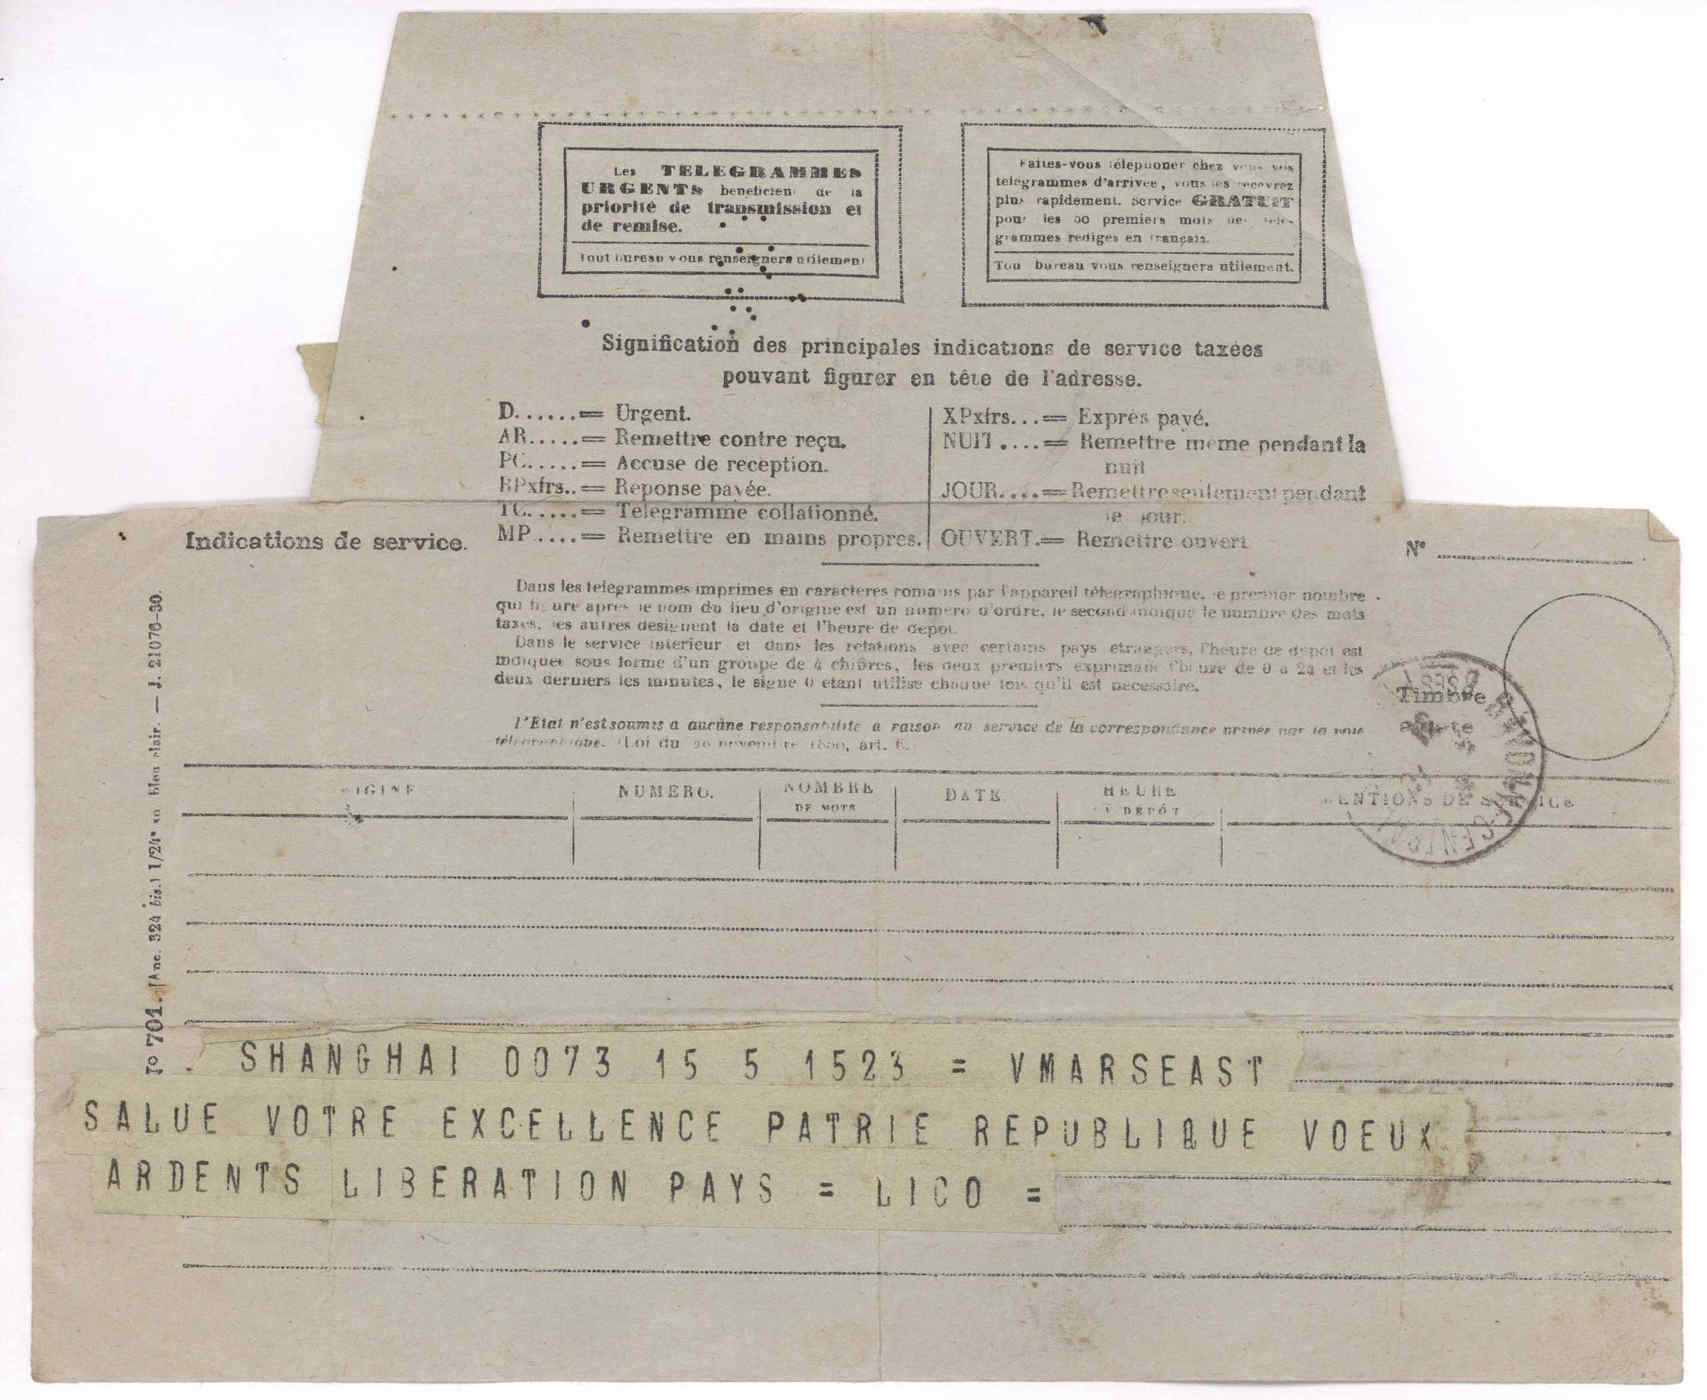 Les TELEGRAMMES
URGENTS beneficient de la
priorité de transmission et
de remise.
Tout bureau vous renseignera utilement
Faites-vous téléphoner chez vous vos
telegrammes d'arrivée, vous les recevrez
plus rapidement. Service GRATUIT
pour les 50 premiers mots des télé-
grammes rediges en français.
Tou bureau vous renseignera utilement.
Signification des principales indications de service taxées
pouvant figurer en tête de l'adresse.
D......= Urgent.
AR.....= Remettre contre reçu.
PC.....= Accuse de reception.
RPxfrs..= Reponse payée.
TC.....= Telegramme collationné.
MP....= Remettre en mains propres.
XPxfrs...= Exprès payé.
NUIT....= Remettre même pendant la
nuit
JOUR....= Remettre seulement pendant
le jour.
OUVERT.= Remettre ouvert
Indications de service.
N°
Dans les telegrammes imprimes en caracteres romains par l'appareil télégraphique, le premier nombre
qui figure après le nom du lieu d'origine est un numero d'ordre, le second indique le nombre des mots
taxés, les autres designent la date et l'heure de depot.
Dans le service interieur et dans les relations avec certains pays etrangers, l'heure de dépôt est
indiquée sous forme d'un groupe de 4 chiffres, les deux premiers exprimant l'heure de 0 a 24 et les
deux derniers les minutes, le signe 0 etant utilise chaque fois qu'il est necessaire.
l'Etat n'est soumis a aucune responsabilite a raison du service de la correspondance privée par la voie
télégraphique. (Loi du novembre 1850, art. 6.
Timbre
à date
BAYONNE
ORIGINE
NUMÉRO.
NOMBRE
DE MOTS
DATE
HEURE
DE DÉPÔT
MENTIONS DE SERVICE
N° 701. [Anc. 324 bis.] 1/24e en bleu clair. — J. 21076-30.
SHANGHAI 0073 15 5 1523 = VMARSEAST
SALUE VOTRE EXCELLENCE PATRIE REPUBLIQUE VOEUX
ARDENTS LIBERATION PAYS = LICO =